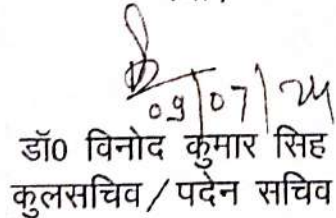 09/07/24
डॉ0 विनोद कुमार सिंह
कुलसचिव / पदेन सचिव